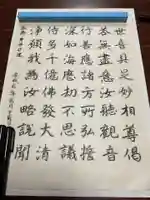 世音具足妙相尊偈
答無盡意汝聽觀音
行善應諸方所弘誓
深如海歷劫不思議
侍多千億佛發大清
淨願我為汝略說聞